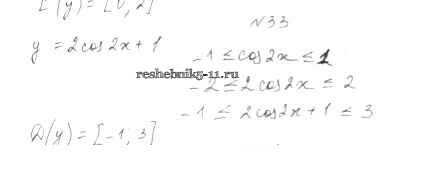 E(y) = [0, 2]
№33
y = 2cos2x + 1
-1 ≤ cos2x ≤ 1
reshebnik5-11.ru
-2 ≤ 2cos2x ≤ 2
-1 ≤ 2cos2x + 1 ≤ 3
D(y) = [-1, 3]